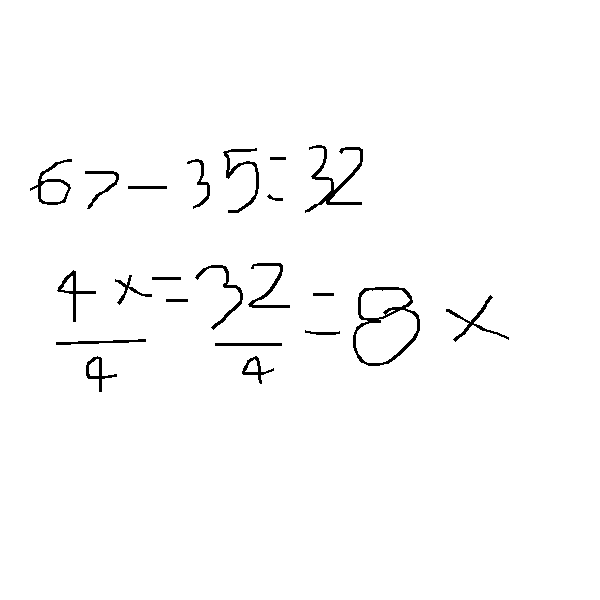 67-35=32
4x/4=32/4=8x